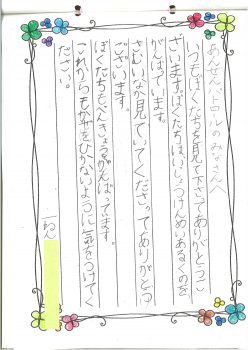 あんぜんパトロールのみなさんへ
いつもぼくたちを見て下さてありがとうご
ざいます。ぼくたちは、いっしょうけんめいあるくのを
がんばっています。
さむいなか見ていてくださってありがとう
ございます。
ぼくたちもべんきょうがんばっています。
これからもかぜをひかないように気をつけてく
ださい。